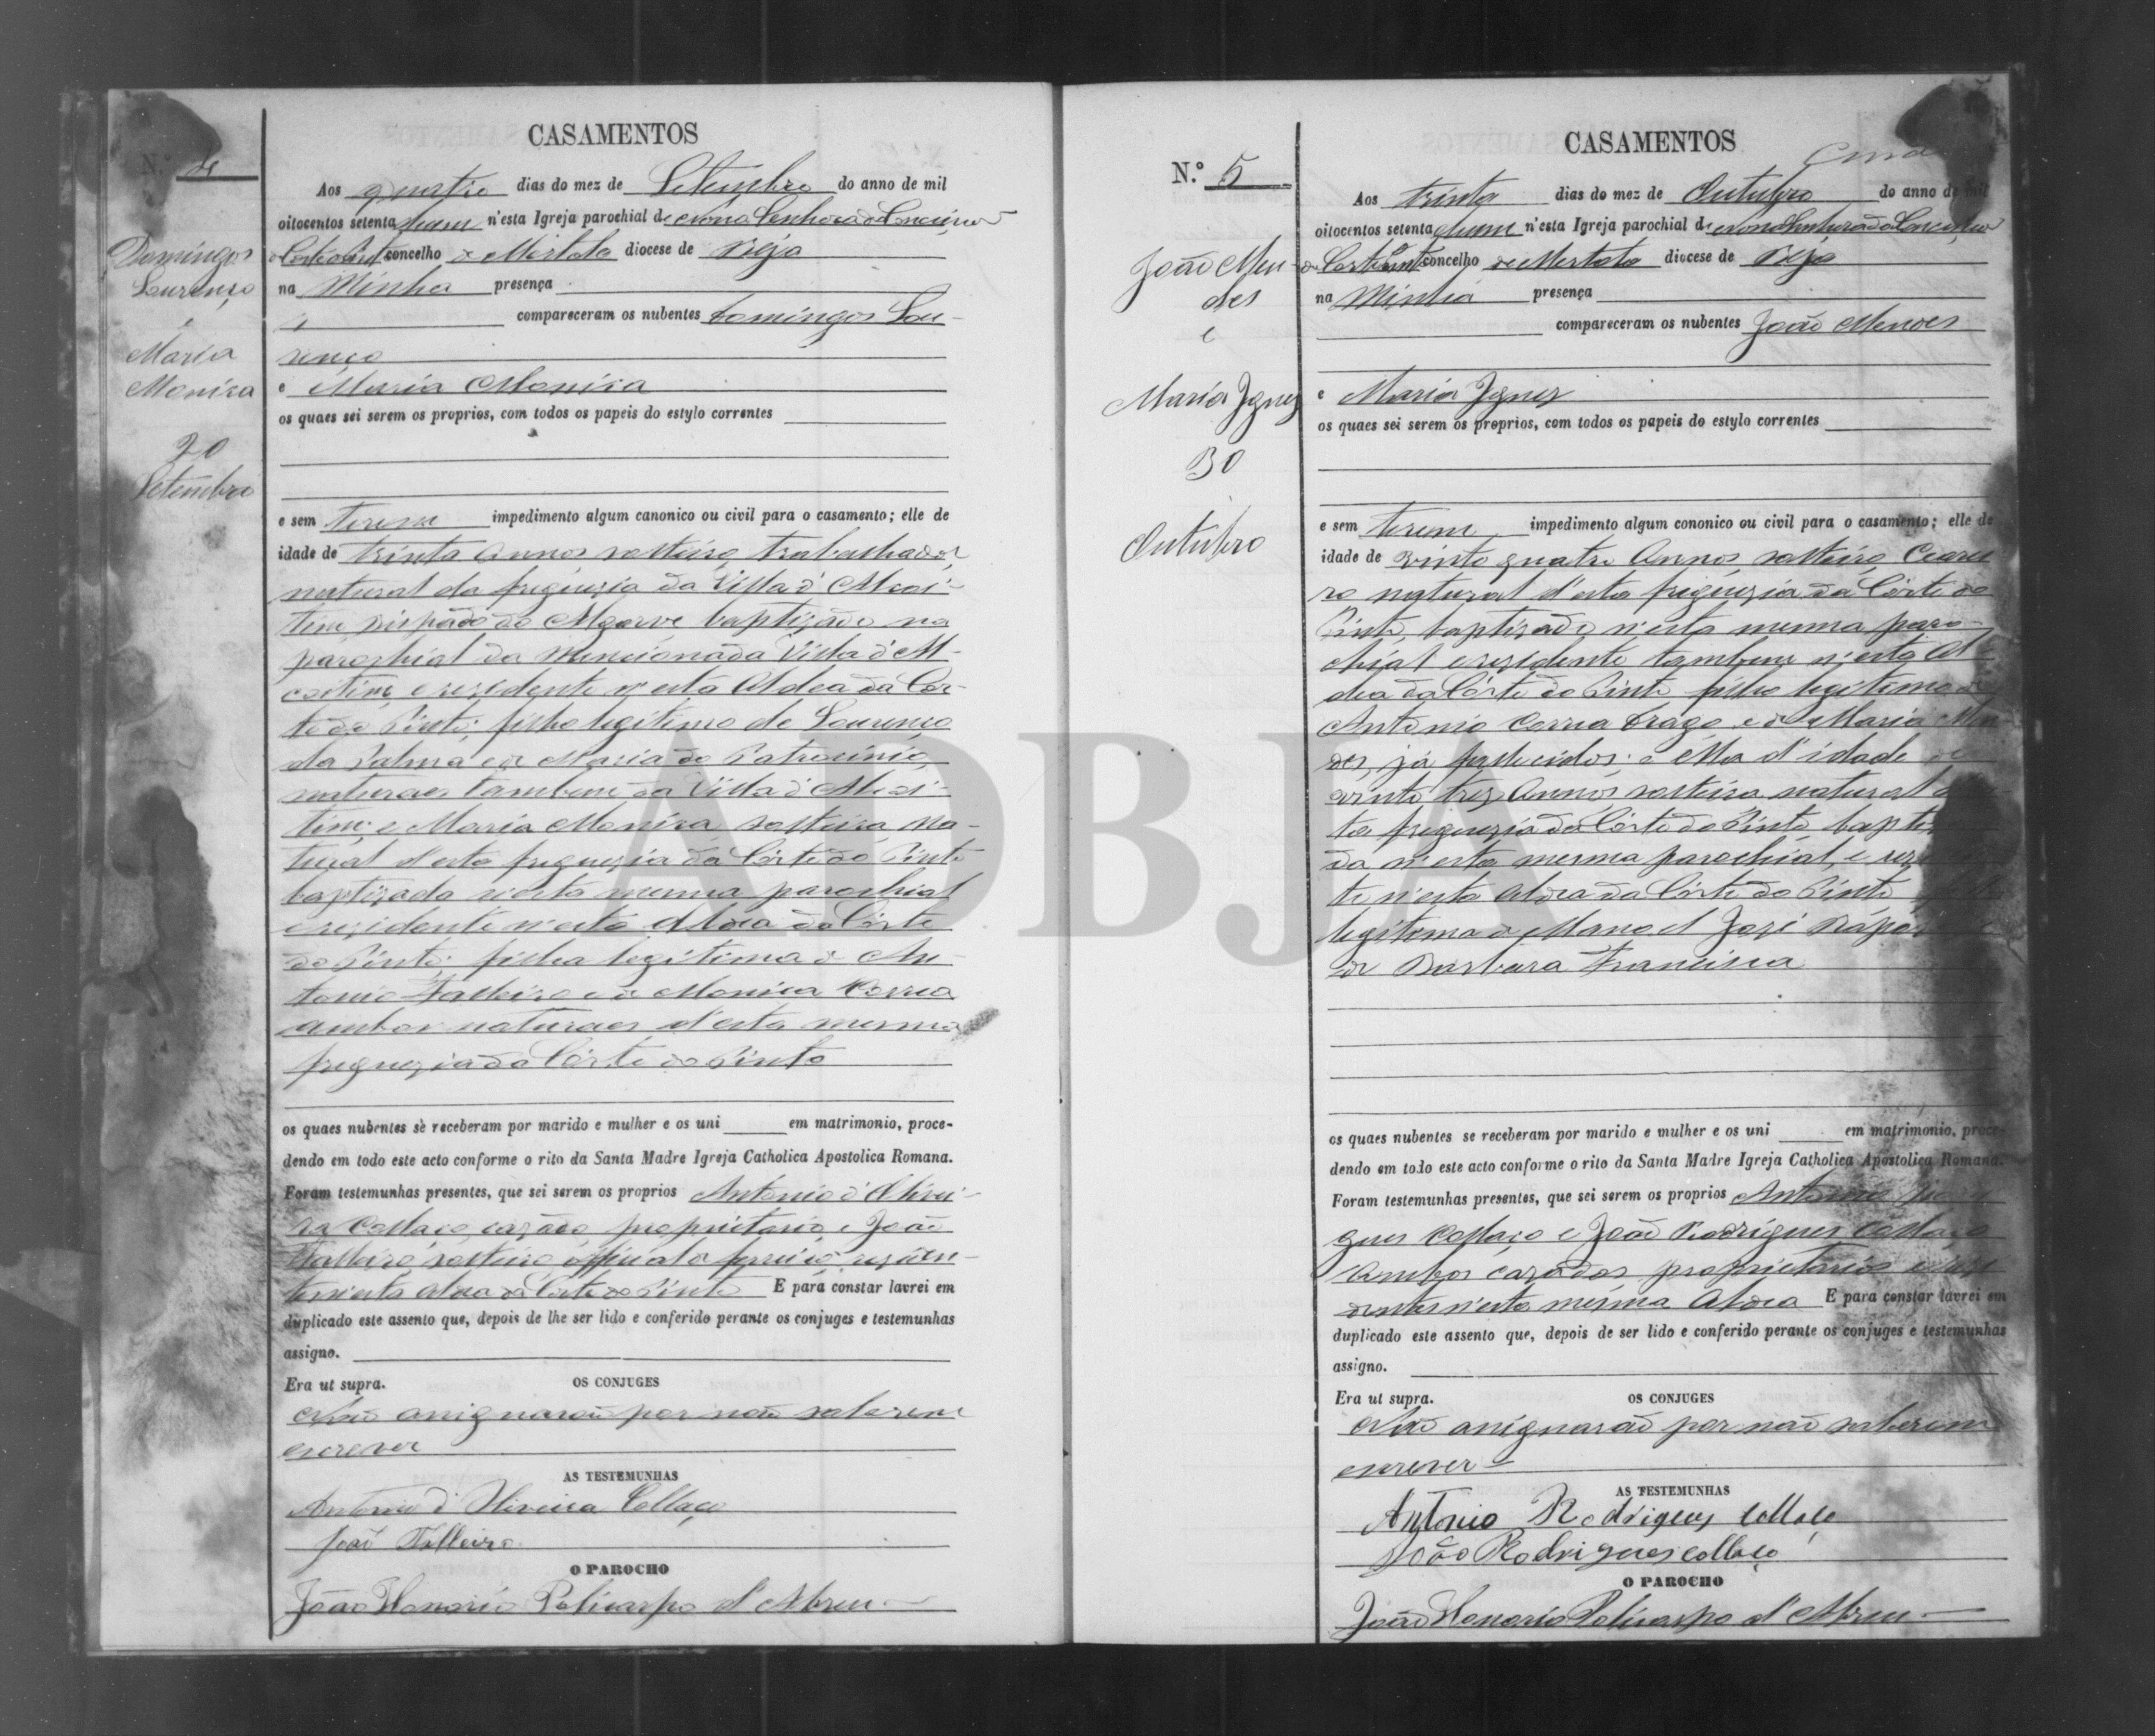 CASAMENTOS
N.º 4
Aos quatro dias do mez de Setembro do anno de mil
oitocentos setenta hum n'esta Igreja parochial de Nossa Senhora da Conceição
concelho de Mertola diocese de Beja
na Minha presença
compareceram os nubentes Domingos Lou-
renço
e Maria Monica
os quaes sei serem os proprios, com todos os papeis do estylo correntes
Domingos
Lourenço
e
Maria
Monica
20
Setembro
e sem terem impedimento algum canonico ou civil para o casamento; elle de
idade de trinta annos solteiro, trabalhador,
natural da freguezia da Villa d'Alcoi-
tim bispado do Algarve baptizado na
parochial da mencionada Villa d'Al-
coitim, e rezidente n'esta Aldea da Cor-
te do Pinto; filho legitimo de Lourenço
da Palma e de Maria do Patrocinio,
naturaes tambem da Villa d'Alcoi-
tim; e Maria Monica solteira, na-
tural d'esta freguezia da Côrte do Pinto
baptizada n'esta mesma parochial
e rezidente n'esta Aldea da Côrte
do Pinto; filha legitima de An-
tonio Palleiro e de Monica Correa
ambos naturaes d'esta mesma
freguezia da Côrte do Pinto
os quaes nubentes se receberam por marido e mulher e os uni em matrimonio, proce-
dendo em todo este acto conforme o rito da Santa Madre Igreja Catholica Apostolica Romana.
Foram testemunhas presentes, que sei serem os proprios Antonio d'Olivei-
ra Collaço, cazado, proprietario, e João
solteiro, official reziden-
n'esta Aldea da Corte do Pinto E para constar lavrei em
duplicado este assento que, depois de lhe ser lido e conferido perante os conjuges e testemunhas
assigno.
Era ut supra. OS CONJUGES
Não assignarão por não saberem
escrever
AS TESTEMUNHAS
Antonio d'Oliveira Collaço
João Falleiro
O PAROCHO
João Honorio Policarpo d'Abreu
CASAMENTOS
N.º 5
Aos trinta dias do mez de Outubro do anno de mil
oitocentos setenta hum n'esta Igreja parochial de Nossa Senhora da Conceição
concelho de Mertola diocese de Beja
na Minha presença
compareceram os nubentes João Mendes
e Maria Ignez
os quaes sei serem os proprios, com todos os papeis do estylo correntes
João Men-
des
e
Maria Ignez
30
Outubro
e sem terem impedimento algum cononico ou civil para o casamento; elle de
idade de vinte quatro annos, solteiro,
natural d'esta freguezia da Côrte do
Pinto, baptizado n'esta mesma paro-
chial e rezidente tambem n'esta Al-
dea da Côrte do Pinto filho legitimo de
Antonio Correa Drago, e de Maria Men-
des, já fallecidos; e ella d'idade de
vinte trez annos solteira natural
ta freguezia da Côrte do Pinto bapti
da n'esta mesma parochial, e rezi
te n'esta Aldea da Côrte do Pinto
legitima de Manoel José
de Barbara Francisca
os quaes nubentes se receberam por marido e mulher e os uni em matrimonio, proce-
dendo em todo este acto conforme o rito da Santa Madre Igreja Catholica Apostolica Romana.
Foram testemunhas presentes, que sei serem os proprios Antonio
gues Collaço e João Rodrigues Collaço
ambos cazados, proprietarios e rezi-
dentes n'esta mesma Aldea E para constar lavrei em
duplicado este assento que, depois de ser lido e conferido perante os conjuges e testemunhas
assigno.
Era ut supra. OS CONJUGES
Não assignarão por não saberem
escrever
AS TESTEMUNHAS
Antonio Rodrigues Collaço
João Rodrigues Collaço
O PAROCHO
João Honorio Policarpo d'Abreu
ADBJA